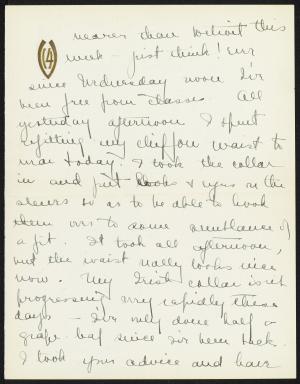 nearer than Detroit this
week - just think! Ever
since Wednesday noon I've
been free from classes. All
yesterday afternoon I spent
refitting my chiffon waist to
wear today. I took the collar
in and put hooks & eyes on the
sleeves so as to be able to hook
them over to some semblance of
a fit. It took all afternoon,
but the waist really looks nice
now. My Irish collar isn't
progressing very rapidly these
days - I've only done half a
grape leaf since I've been back.
I took your advice and have